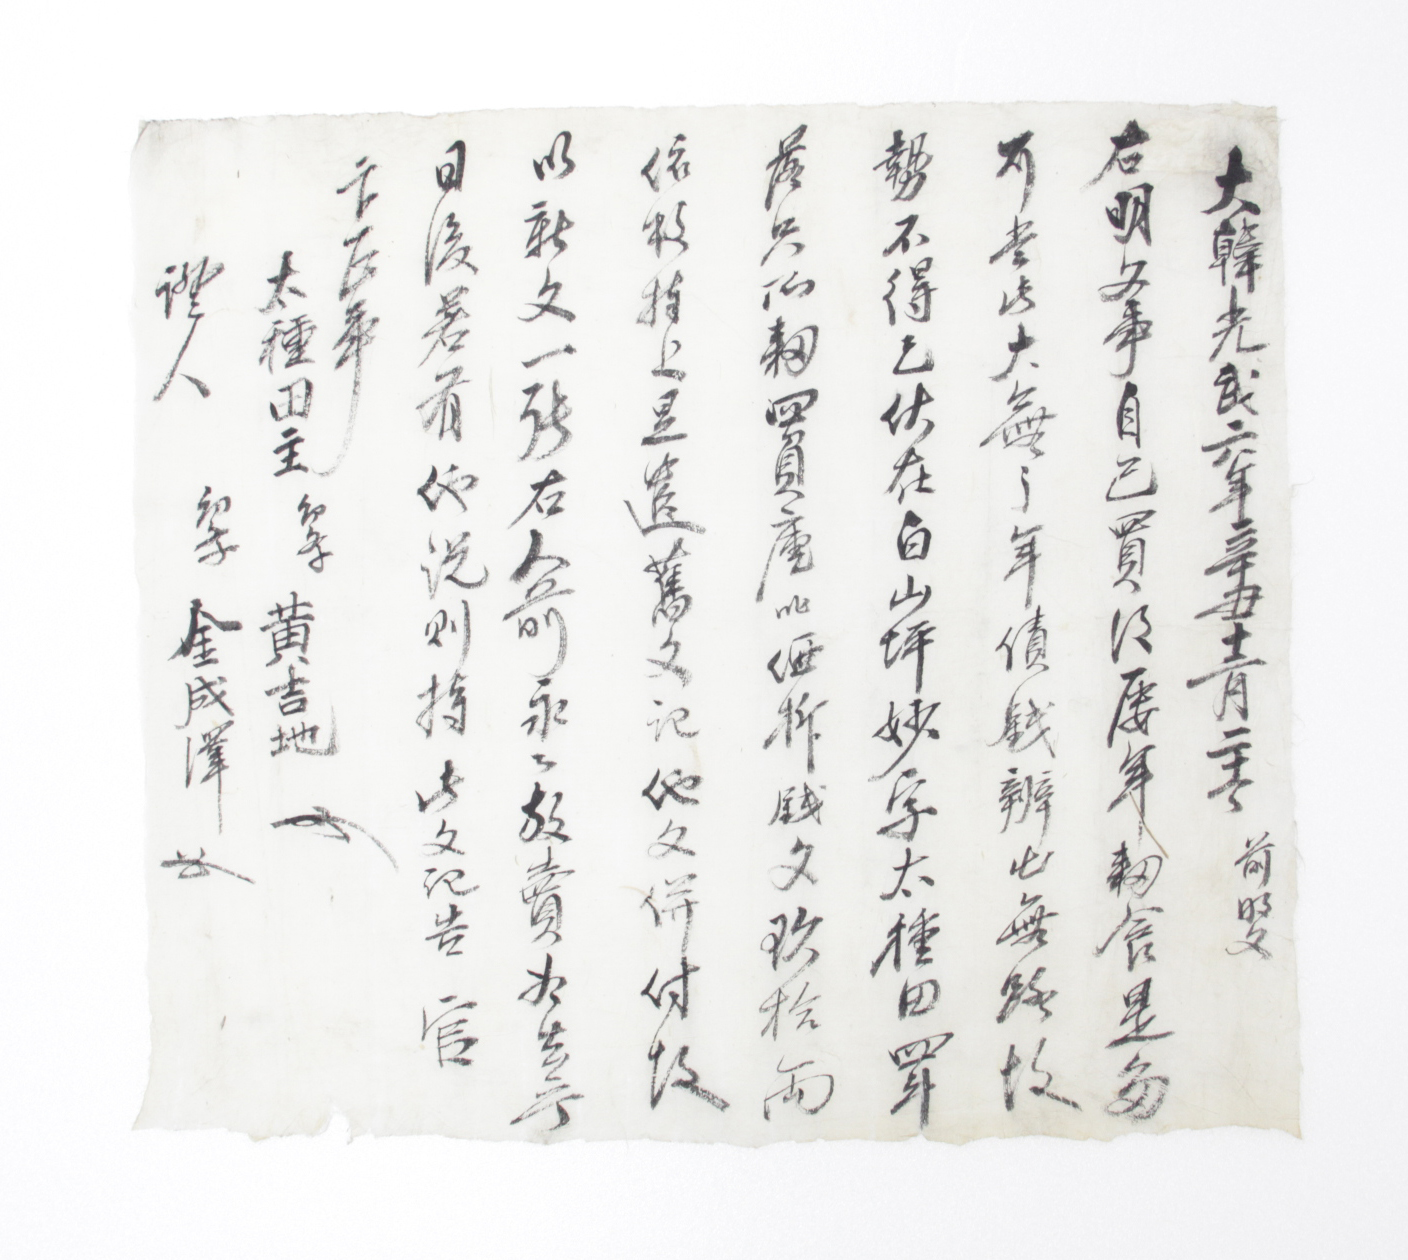 大韓光武六年辛丑十二月二十二日 前明文
右明文事自己買得屢年耕食是多
可當此大無之年債錢辦出無路故
勢不得已伏在白山坪妙字太種田四斗
落只所耕四負庫叱価折錢文玖拾兩
依數捧上是遣舊文記他文倂付故
以新文一張右人前永永放賣爲去乎
日後若有他說則持此文記告 官
卞正事
太種田主 喪 黃吉地
證人 喪 金成澤